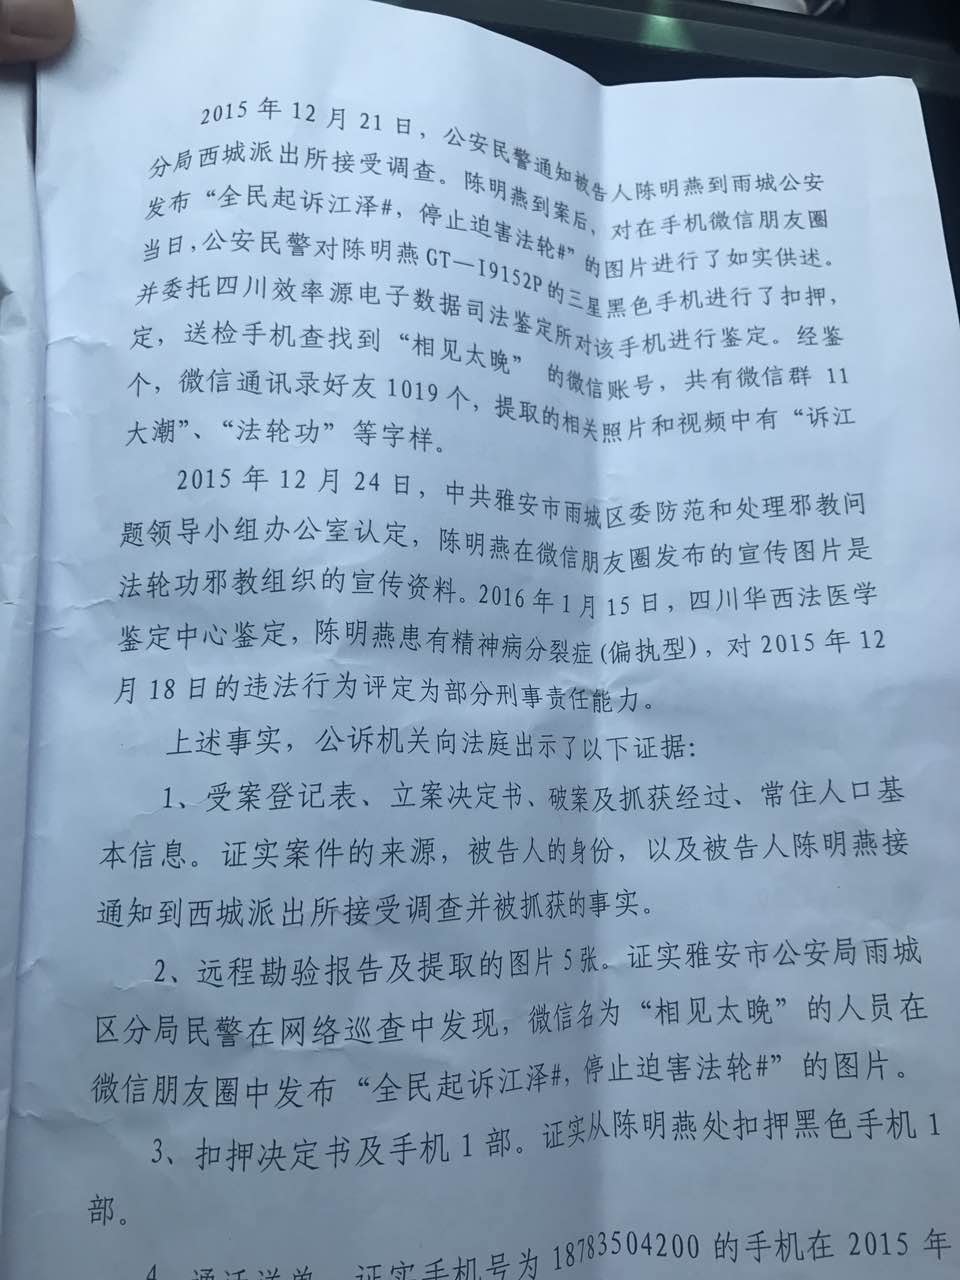 2015 年 12 月 21 日，公安民警通知被告人陈明燕到雨城公安
分局西城派出所接受调查。陈明燕到案后，对在手机微信朋友圈
发布“全民起诉江泽#，停止迫害法轮#”的图片进行了如实供述。
当日，公安民警对陈明燕 GT—I9152P 的三星黑色手机进行了扣押，
并委托四川效率源电子数据司法鉴定所对该手机进行鉴定。经鉴
定，送检手机查找到“相见太晚”的微信账号，共有微信群 11
个，微信通讯录好友 1019 个，提取的相关照片和视频中有“诉江
大潮”、“法轮功”等字样。
2015 年 12 月 24 日，中共雅安市雨城区委防范和处理邪教问
题领导小组办公室认定，陈明燕在微信朋友圈发布的宣传图片是
法轮功邪教组织的宣传资料。2016 年 1 月 15 日，四川华西法医学
鉴定中心鉴定，陈明燕患有精神病分裂症(偏执型)，对 2015 年 12
月 18 日的违法行为评定为部分刑事责任能力。
上述事实，公诉机关向法庭出示了以下证据：
1、受案登记表、立案决定书、破案及抓获经过、常住人口基
本信息。证实案件的来源，被告人的身份，以及被告人陈明燕接
通知到西城派出所接受调查并被抓获的事实。
2、远程勘验报告及提取的图片 5 张。证实雅安市公安局雨城
区分局民警在网络巡查中发现，微信名为“相见太晚”的人员在
微信朋友圈中发布“全民起诉江泽#，停止迫害法轮#”的图片。
3、扣押决定书及手机 1 部。证实从陈明燕处扣押黑色手机 1
部。
4、通话 单 证实手机号为 18783504200 的手机在 2015 年